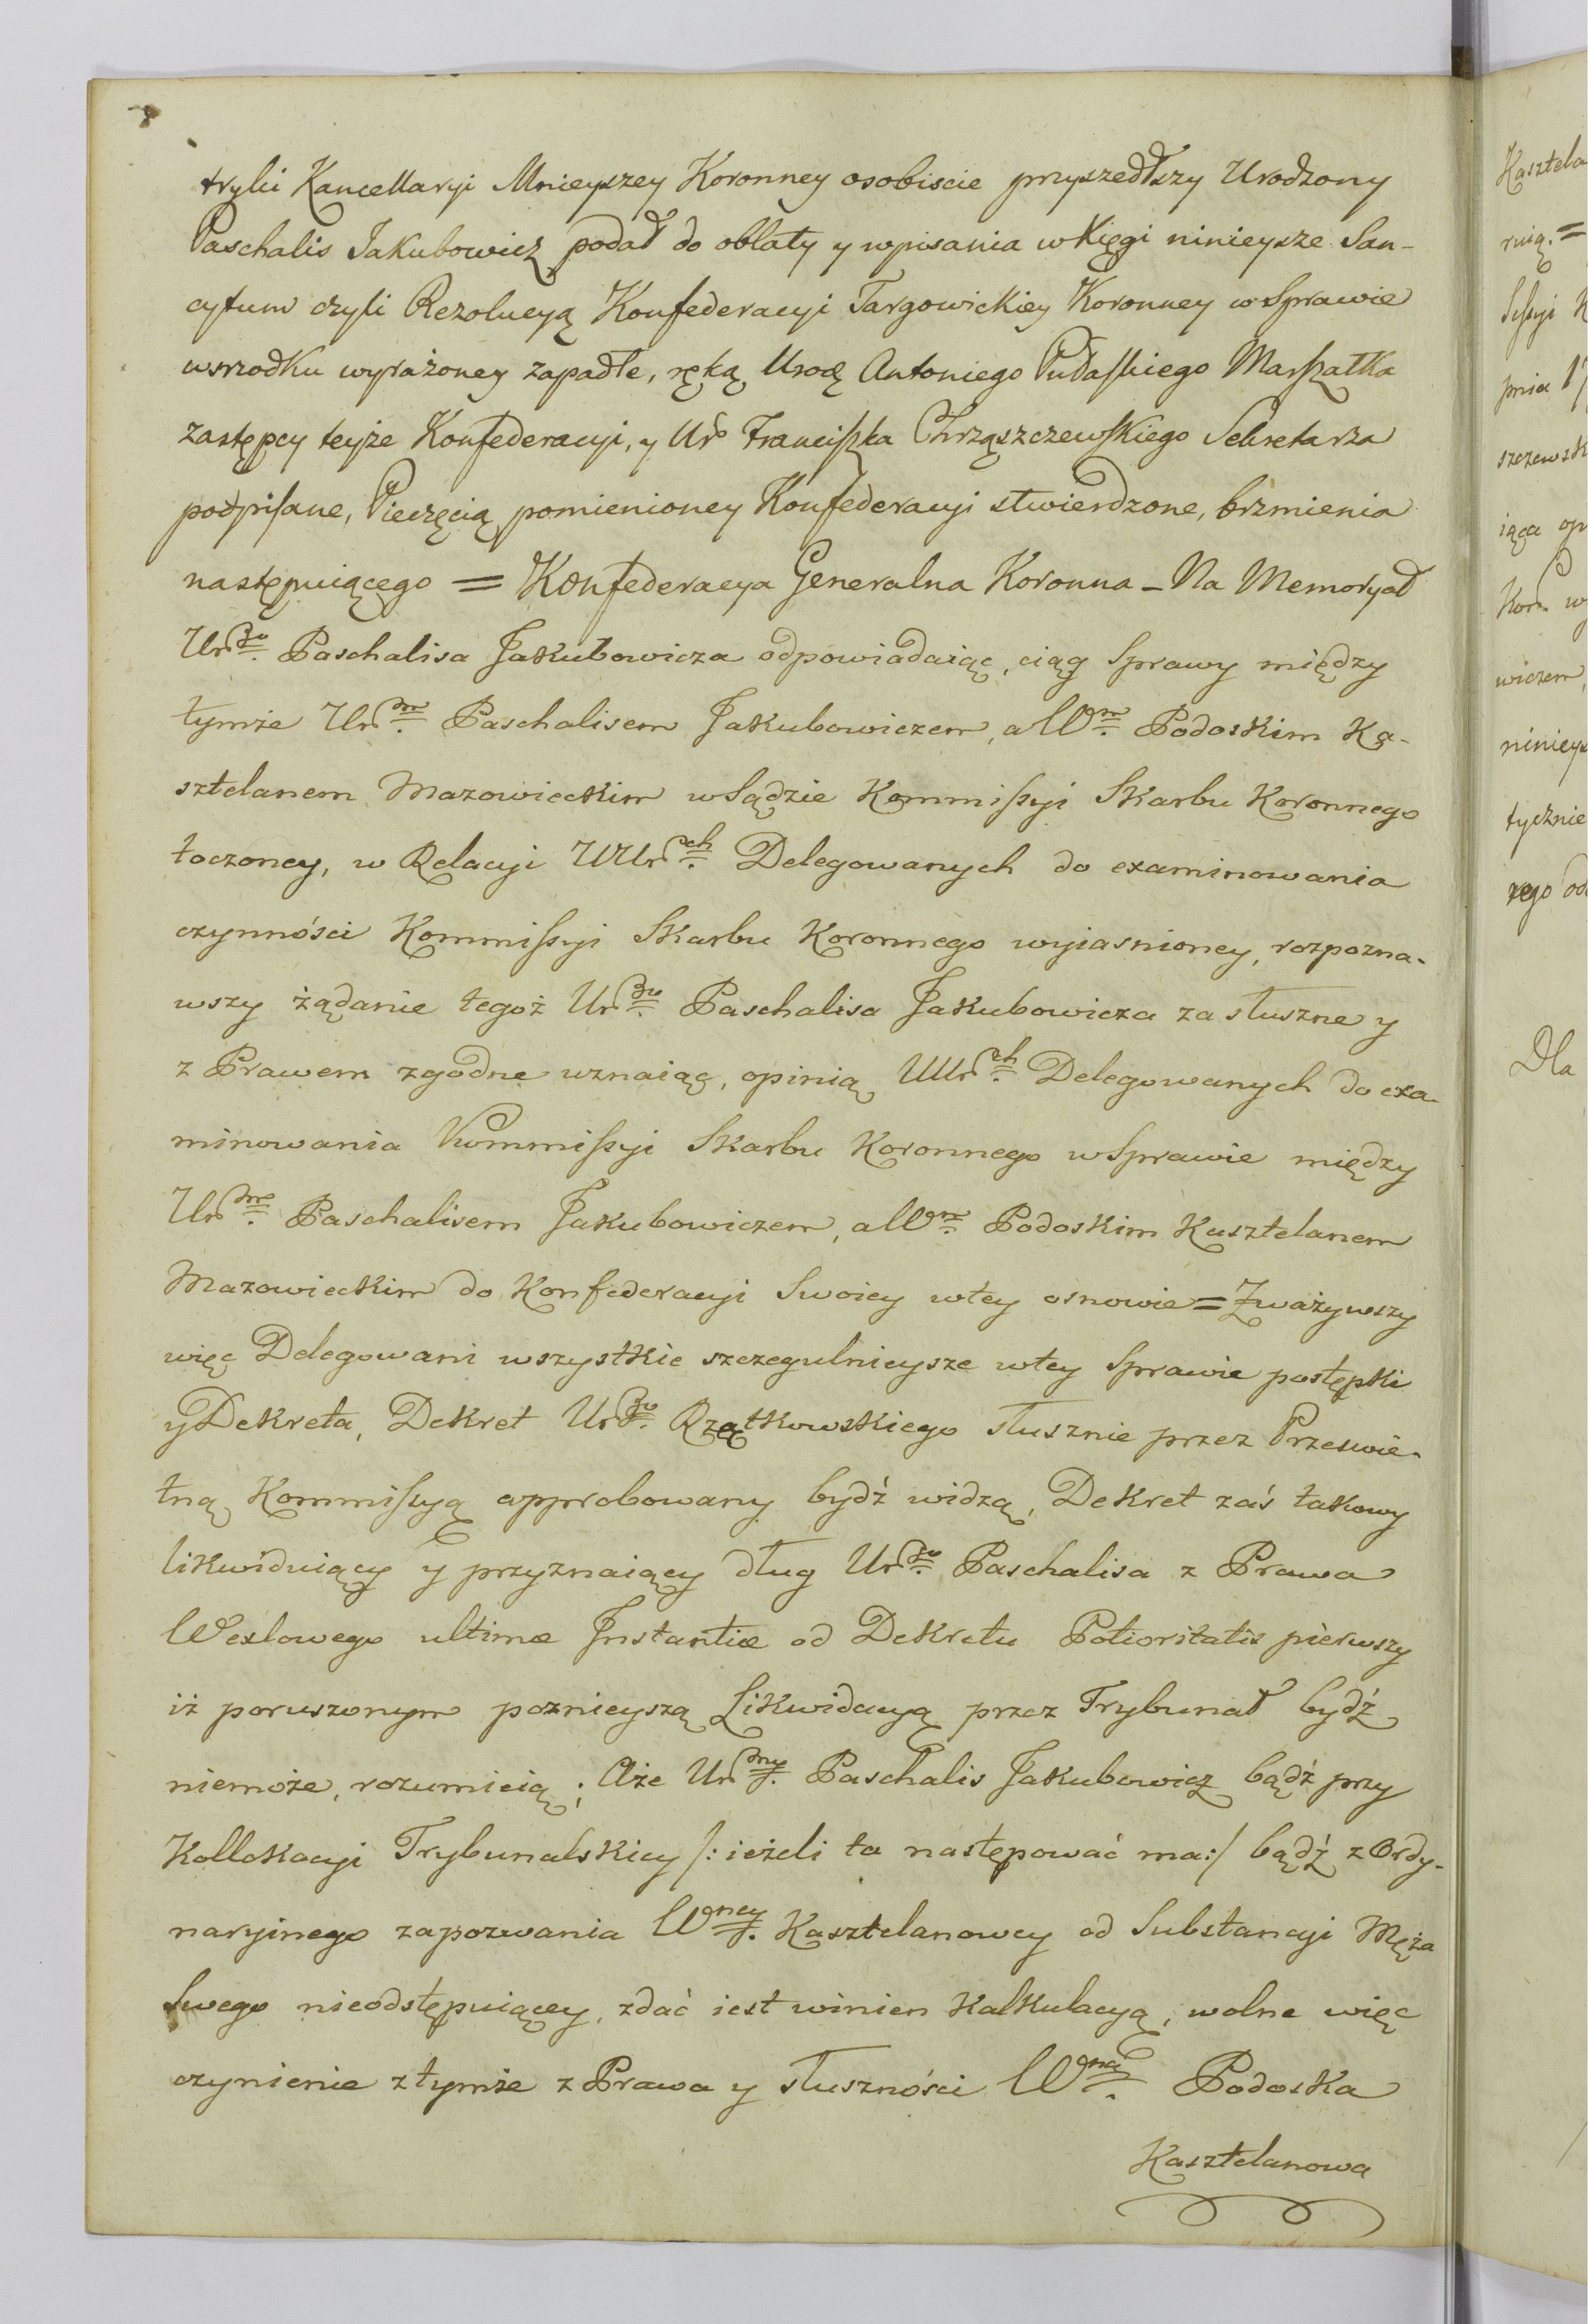 trylii Kancellaryi Mnieyszey Koronney osobiscie przyszedłszy Urodzony
Paschalis Jakubowicz podał do oblaty y wpisania w Kięgi ninieysze San-
cytum czyli Rezolucyą Konfederacyi Targowickiey Koronney w Sprawie
wsrzodku wyrażoney zapadłe, ręką Urodz Antoniego Pułaskiego Marszałka
zastępcy teyże Konfederacyi, y Ur Franciszka Chrząszczewskiego Sekretarza
podpisane, Pieczęcią pomienioney Konfederacyi stwierdzone, brzmienia
następuiącego = Konfederacya Generalna Koronna – Na Memoryał
Urgo. Paschalisa Jakubowicza odpowiadaiąc, ciąg Sprawy między
tymże Urm. Paschalisem Jakubowiczem, a Wm. Podoskim Ka-
sztelanem Mazowieckim w Sądzie Kommissyi Skarbu Koronnego
toczoney, w Relacyi UUrch. Delegowanych do examinowania
czynności Kommissyi Skarbu Koronnego wyiasnioney, rozpozna-
wszy żądanie tegoż Urgo. Paschalisa Jakubowicza za słuszne y
z Prawem zgodne uznaiąc, opinią UUrch. Delegowanych do exa-
minowania Kommissyi Skarbu Koronnego w Sprawie między
Urm. Paschalisem Jakubowiczem, a Wm. Podoskim Kasztelanem
Mazowieckim do Konfederacyi Swoiey w tey osnowie = Zważywszy
więc Delegowani wszystkie szczegulnieysze w tey Sprawie postępki
y Dekreta, Dekret Urgo. Rzątkowskiego słusznie przez Przeswie-
tną Kommissyą approbowany bydź widzą, Dekret zaś takowy
likwiduiący y przyznaiący dług Urgo. Paschalisa z Prawa
Wexlowego ultimæ Instantiæ od Dekretu Potioritatis pierwszy
iż poruszonym poznieyszą Likwidacyą przez Trybunał bydź
niemoże, rozumieią; Aże Urny. Paschalis Jakubowicz bądź przy
Kollokacyi Trybunalskiey /: ieżeli ta następować ma :/ bądź z Ordy-
naryinego zapozwania Wney. Kasztelanowey od Substancyi Męża
Swego nieodstępuiącey, zdać iest winien Kalkulacyą, wolne więc
czynienie z tymże z Prawa y słuszności Wna. Podoska
Kasztelanowa